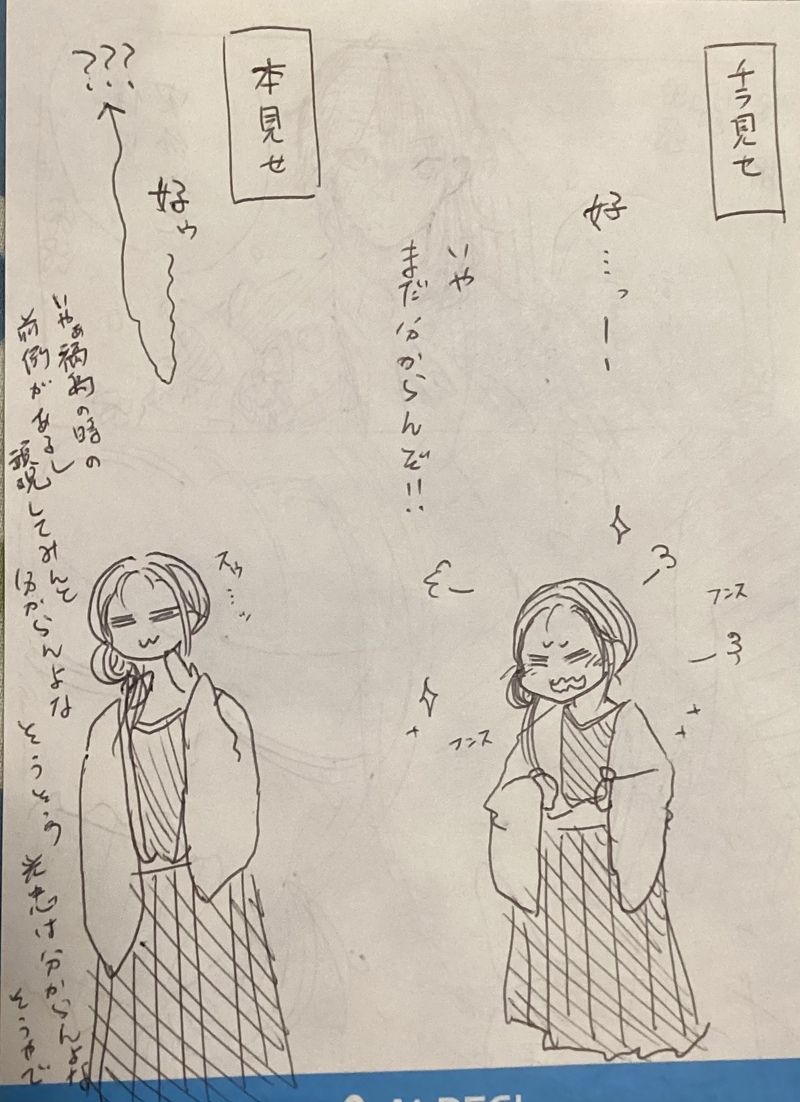 チラ見せ
好…っーー
いや
まだ分からんぞ!!
フンス
フンス
本見せ
好ゥ
???
スゥ…ッ
いやぁ 福袋の時の
前例があるし
頭呪してみんと
分からんよな
そうそう
は分からんよな
そうやで